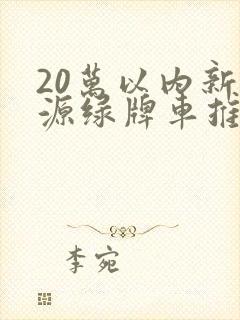 20萬以内新
源绿牌車推
李宛